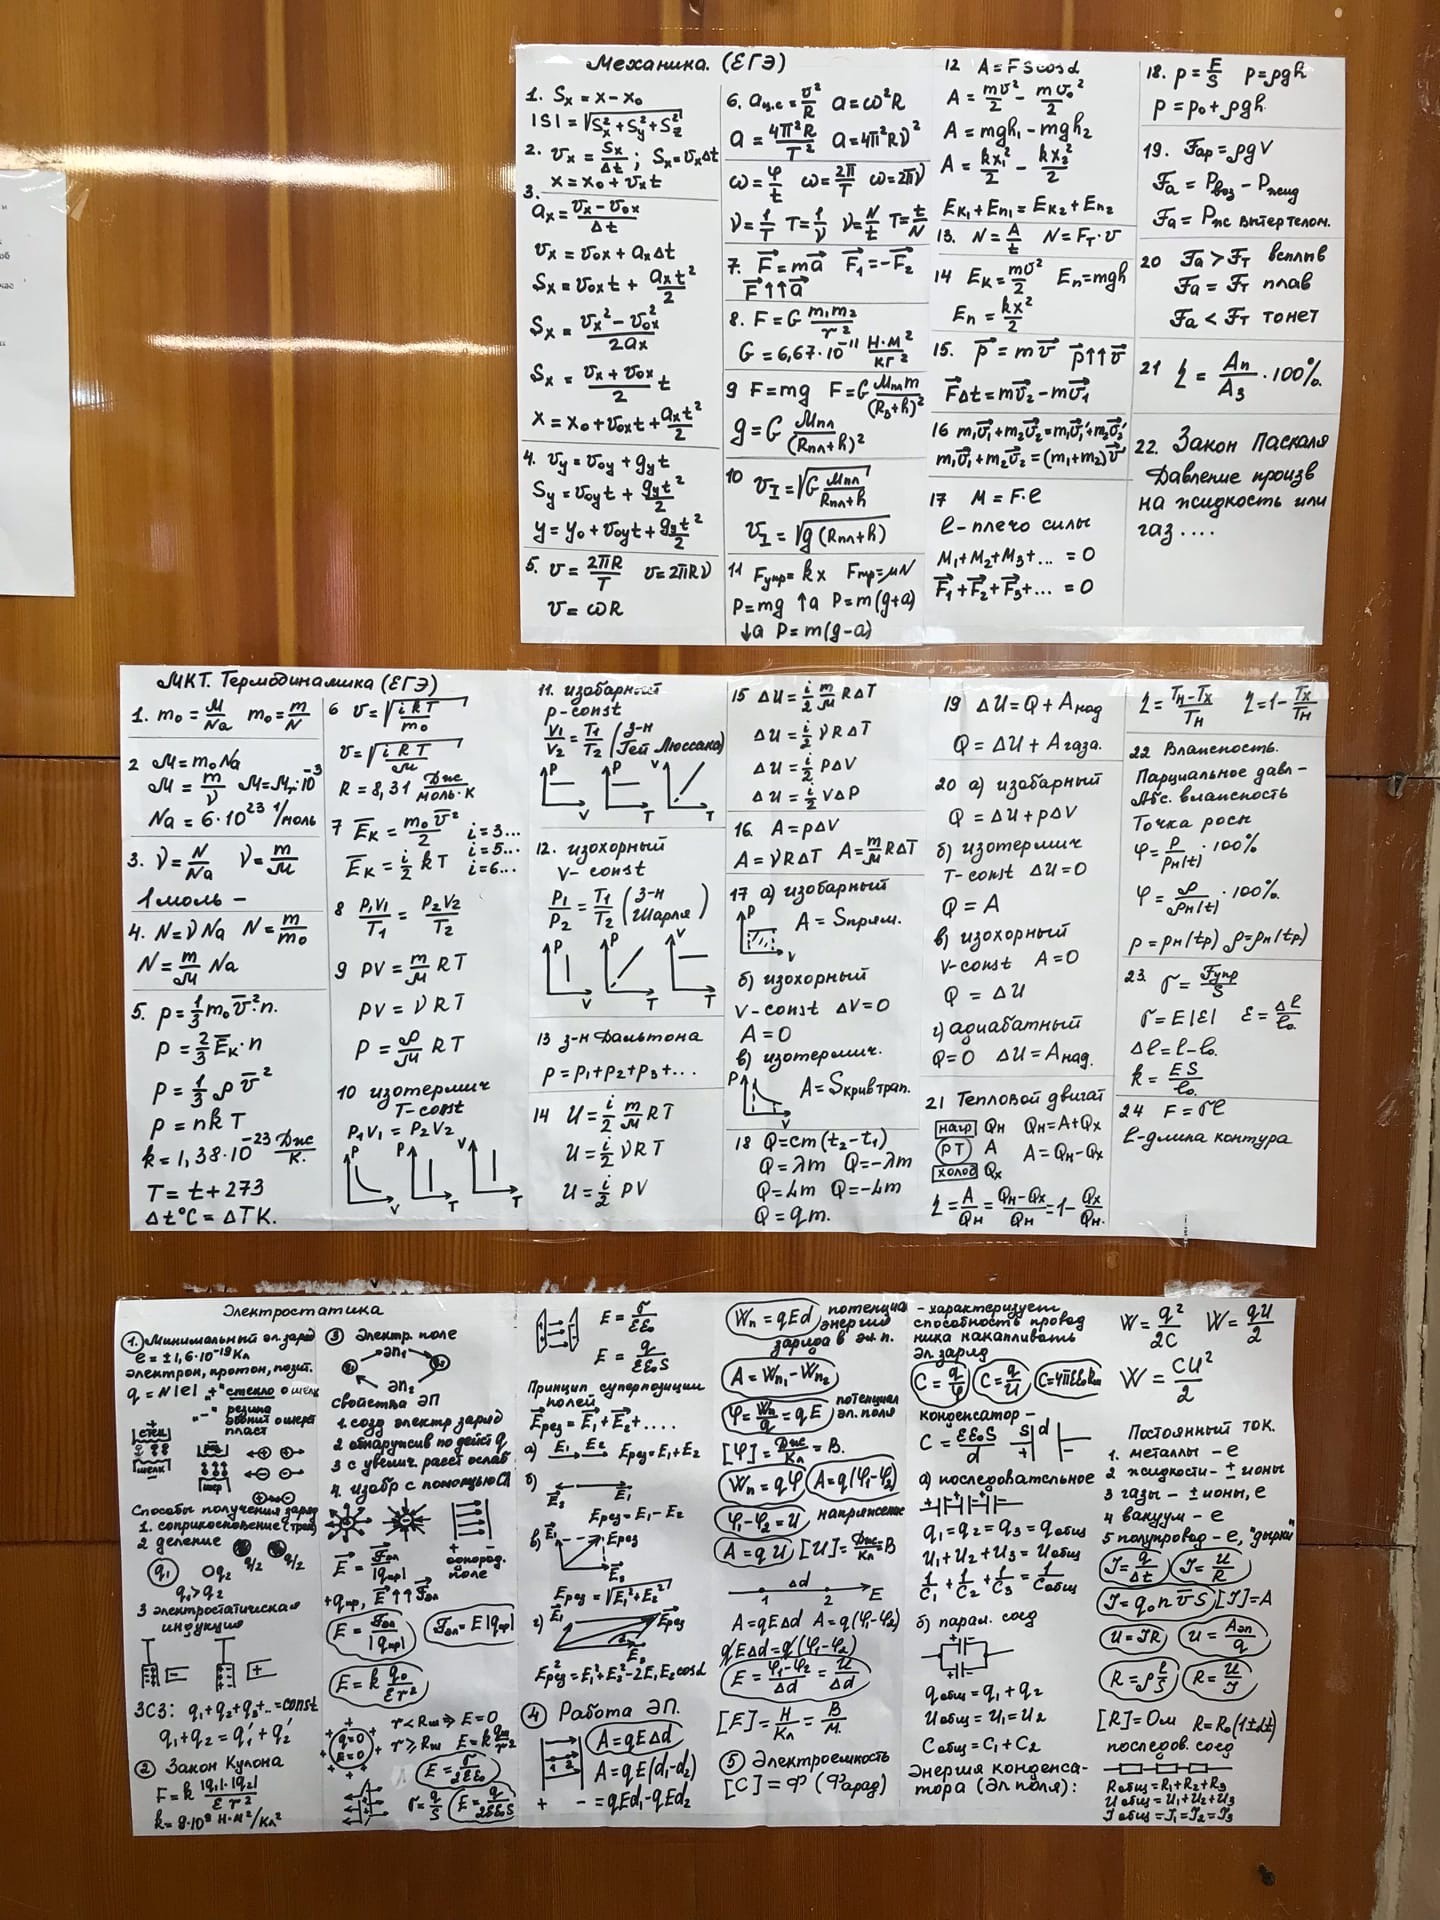 Механика. (ЕГЭ)
1. Sx = x - x₀
|S| = √(Sx² + Sy² + Sz²)
2. υx = Sx/Δt ; Sx = υxΔt
x = x₀ + υxt
3.
ax = (υx - υ₀x)/Δt
υx = υ₀x + axΔt
Sx = υ₀xt + axt²/2
Sx = (υx² - υ₀x²)/2ax
Sx = (υx + υ₀x)/2 t
x = x₀ + υ₀xt + axt²/2
4. υy = υ₀y + gyt
Sy = υ₀yt + gyt²/2
y = y₀ + υ₀yt + gyt²/2
5. υ = 2πR/T υ = 2πRν
υ = ωR
6. aц.с = υ²/R a = ω²R
a = 4π²R/T² a = 4π²Rν²
ω = φ/t ω = 2π/T ω = 2πν
ν = 1/T T = 1/ν ν = N/t T = t/N
7. F⃗ = ma⃗ F⃗₁ = -F⃗₂
F⃗↑↑a⃗
8. F = G m₁m₂/r²
G = 6,67·10⁻¹¹ Н·м²/кг²
9 F = mg F = G Mпл m/(Rз+h)²
g = G Mпл/(Rпл+h)²
10 υI = √(G Mпл/(Rпл+h))
υI = √(g(Rпл+h))
11 Fупр = kx Fтр = μN
P = mg ↑a P = m(g+a)
↓a P = m(g-a)
12 A = FScosα
A = mυ²/2 - mυ₀²/2
A = mgh₁ - mgh₂
A = kx₁²/2 - kx₂²/2
Eк₁ + Eп₁ = Eк₂ + Eп₂
13. N = A/t N = Fт·υ
14 Eк = mυ²/2 Eп = mgh
Eп = kx²/2
15. p⃗ = mυ⃗ p⃗↑↑υ⃗
F⃗Δt = mυ⃗₂ - mυ⃗₁
16 m₁υ⃗₁ + m₂υ⃗₂ = m₁υ⃗₁' + m₂υ⃗₂'
m₁υ⃗₁ + m₂υ⃗₂ = (m₁+m₂)υ⃗
17 M = F·l
l - плечо силы
M₁+M₂+M₃+... = 0
F⃗₁+F⃗₂+F⃗₃+... = 0
18. p = F/S p = ρgh
p = p₀ + ρgh
19. Fар = ρgV
Fа = Pвоз - Pжид
Fа = Pж вытер телом.
20 Fа > Fт всплыв
Fа = Fт плав
Fа < Fт тонет
21 η = Aп/Aз · 100%.
22. Закон Паскаля
Давление произв
на жидкость или
газ ....
МКТ. Термодинамика (ЕГЭ)
1. m₀ = M/Na m₀ = m/N
2 M = m₀Na
M = m/ν M = Mr·10⁻³
Na = 6·10²³ 1/моль
3. ν = N/Na ν = m/M
1 моль -
4. N = νNa N = m/m₀
N = m/M Na
5. p = 1/3 m₀υ̅²·n.
p = 2/3 E̅к·n
p = 1/3 ρυ̅²
p = nkT
k = 1,38·10⁻²³ Дж/К.
T = t + 273
Δt°C = ΔTK.
6 υ = √(ikT/m₀)
υ = √(iRT/M)
R = 8,31 Дж/моль·К
7 E̅к = m₀υ̅²/2 i=3...
i=5...
E̅к = i/2 kT i=6...
8 P₁V₁/T₁ = P₂V₂/T₂
9 PV = m/M RT
PV = νRT
P = ρ/M RT
10 изотермич
T-const
P₁V₁ = P₂V₂
P V P T V T
11. изобарный
p-const
V₁/V₂ = T₁/T₂ (з-н Гей Люссака)
P V P T V T
12. изохорный
V-const
P₁/P₂ = T₁/T₂ (з-н Шарля)
P V P T V T
13 з-н Дальтона
p = p₁+p₂+p₃+...
14 U = i/2 m/M RT
U = i/2 νRT
U = i/2 PV
15 ΔU = i/2 m/M RΔT
ΔU = i/2 νRΔT
ΔU = i/2 PΔV
ΔU = i/2 VΔP
16. A = pΔV
A = νRΔT A = m/M RΔT
17 а) изобарный
P V A = Sпрям.
б) изохорный
V-const ΔV=0
A = 0
в) изотермич.
P V A = Sкрив трап.
18 Q = cm(t₂-t₁)
Q = λm Q = -λm
Q = Lm Q = -Lm
Q = qm.
19 ΔU = Q + Aнад
Q = ΔU + Aгаза.
20 а) изобарный
Q = ΔU + pΔV
б) изотермич
T-const ΔU = 0
Q = A
в) изохорный
V-const A = 0
Q = ΔU
г) адиабатный
Q=0 ΔU = Aнад.
21 Тепловой двигат
нагр Qн Qн = A+Qх
РТ A A = Qн-Qх
холод Qх
η = A/Qн = (Qн-Qх)/Qн = 1 - Qх/Qн.
η = (Tн-Tх)/Tн η = 1 - Tх/Tн
22 Влажность.
Парциальное давл-
Абс. влажность
Точка росы
φ = p/pн(t) · 100%
φ = ρ/ρн(t) · 100%.
p = pн(tp) ρ = ρн(tp)
23. σ = Fупр/S
σ = E|ε| ε = Δl/l₀
Δl = l - l₀
k = ES/l₀.
24 F = σl
l - длина контура
Электростатика
① Минимальный эл. заряд
e = ±1,6·10⁻¹⁹Кл
электрон, протон, позит.
q = N|e| "+" стекло о шёлк
резина
"-" эбонит о шерст
пласт
стек
шелк
шер
Способы получения заряд
1. соприкосновение (трен)
2 деление q/2 q/2
q₁ q₂
q₁>q₂
3 электростатическая
индукция
ЗСЗ: q₁+q₂+q₃+... = const
q₁+q₂ = q₁'+q₂'
② Закон Кулона
F = k |q₁|·|q₂|/εr²
k = 9·10⁹ Н·м²/Кл²
③ Электр. поле
эп₁
q₁ q₂
эп₂
свойства ЭП
1. созд электр заряд
2 обнаружив по дейст q
3 с увелич. расст ослаб
4. изобр с помощью СЛ
+ -
однород.
поле
E⃗ = F⃗эл/|qпр|
+qпр, E⃗↑↑F⃗эл
E = Fэл/|qпр| Fэл = E|qпр|
E = k q₀/εr²
q=0
E=0
r < Rш ⇒ E = 0
r ≥ Rш E = k qш/r²
E = σ/2εε₀
σ = q/S E = q/2εε₀S
E = σ/εε₀
E = q/εε₀S
Принцип суперпозиции
полей
E⃗рез = E⃗₁ + E⃗₂ + ....
а) E⃗₁ E⃗₂ Eрез = E₁+E₂
б) E⃗₂ E⃗₁
Eрез = E₁ - E₂
в) E⃗₁ E⃗рез
E⃗₂
Eрез = √(E₁²+E₂²)
г) E⃗₁ E⃗рез
E⃗₂
E²рез = E₁²+E₂²-2E₁E₂cosα
④ Работа ЭП.
A = qEΔd
1 2 A = qE(d₁-d₂)
+ - = qEd₁-qEd₂
Wп = qEd потенциа
энергия
заряда в эл. п.
A = Wп₁ - Wп₂
φ = Wп/q = qE потенциал
эл. поля
[φ] = Дж/Кл = В.
Wп = qφ A = q(φ₁-φ₂)
φ₁-φ₂ = U напряжение
A = qU [U] = Дж/Кл = В
Δd
1 2 E
A = qEΔd A = q(φ₁-φ₂)
qEΔd = q(φ₁-φ₂)
E = (φ₁-φ₂)/Δd = U/Δd
[E] = Н/Кл = В/м.
⑤ Электроемкость
[C] = Ф (Фарад)
- характеризует
способность провод
ника накапливать
эл. заряд
C = q/φ C = q/U C = 4πεε₀Rш
конденсатор -
C = εε₀S/d S d
+ -
а) последовательное
q₁ = q₂ = q₃ = qобщ
U₁+U₂+U₃ = Uобщ
1/C₁ + 1/C₂ + 1/C₃ = 1/Cобщ
б) парал. соед
qобщ = q₁+q₂
Uобщ = U₁ = U₂
Cобщ = C₁+C₂
Энергия конденса-
тора (эл поля):
W = q²/2C W = qU/2
W = CU²/2
Постоянный ток.
1. металлы - e
2 жидкости - ± ионы
3 газы - ± ионы, e
4 вакуум - e
5 полупровод - e, "дырки"
I = q/Δt I = U/R
I = q₀nυ̅S [I] = А
U = IR U = Aэл/q
R = ρ l/S R = U/I
[R] = Ом R = R₀(1±αt)
последов. соед
Rобщ = R₁+R₂+R₃
Uобщ = U₁+U₂+U₃
Iобщ = I₁=I₂=I₃